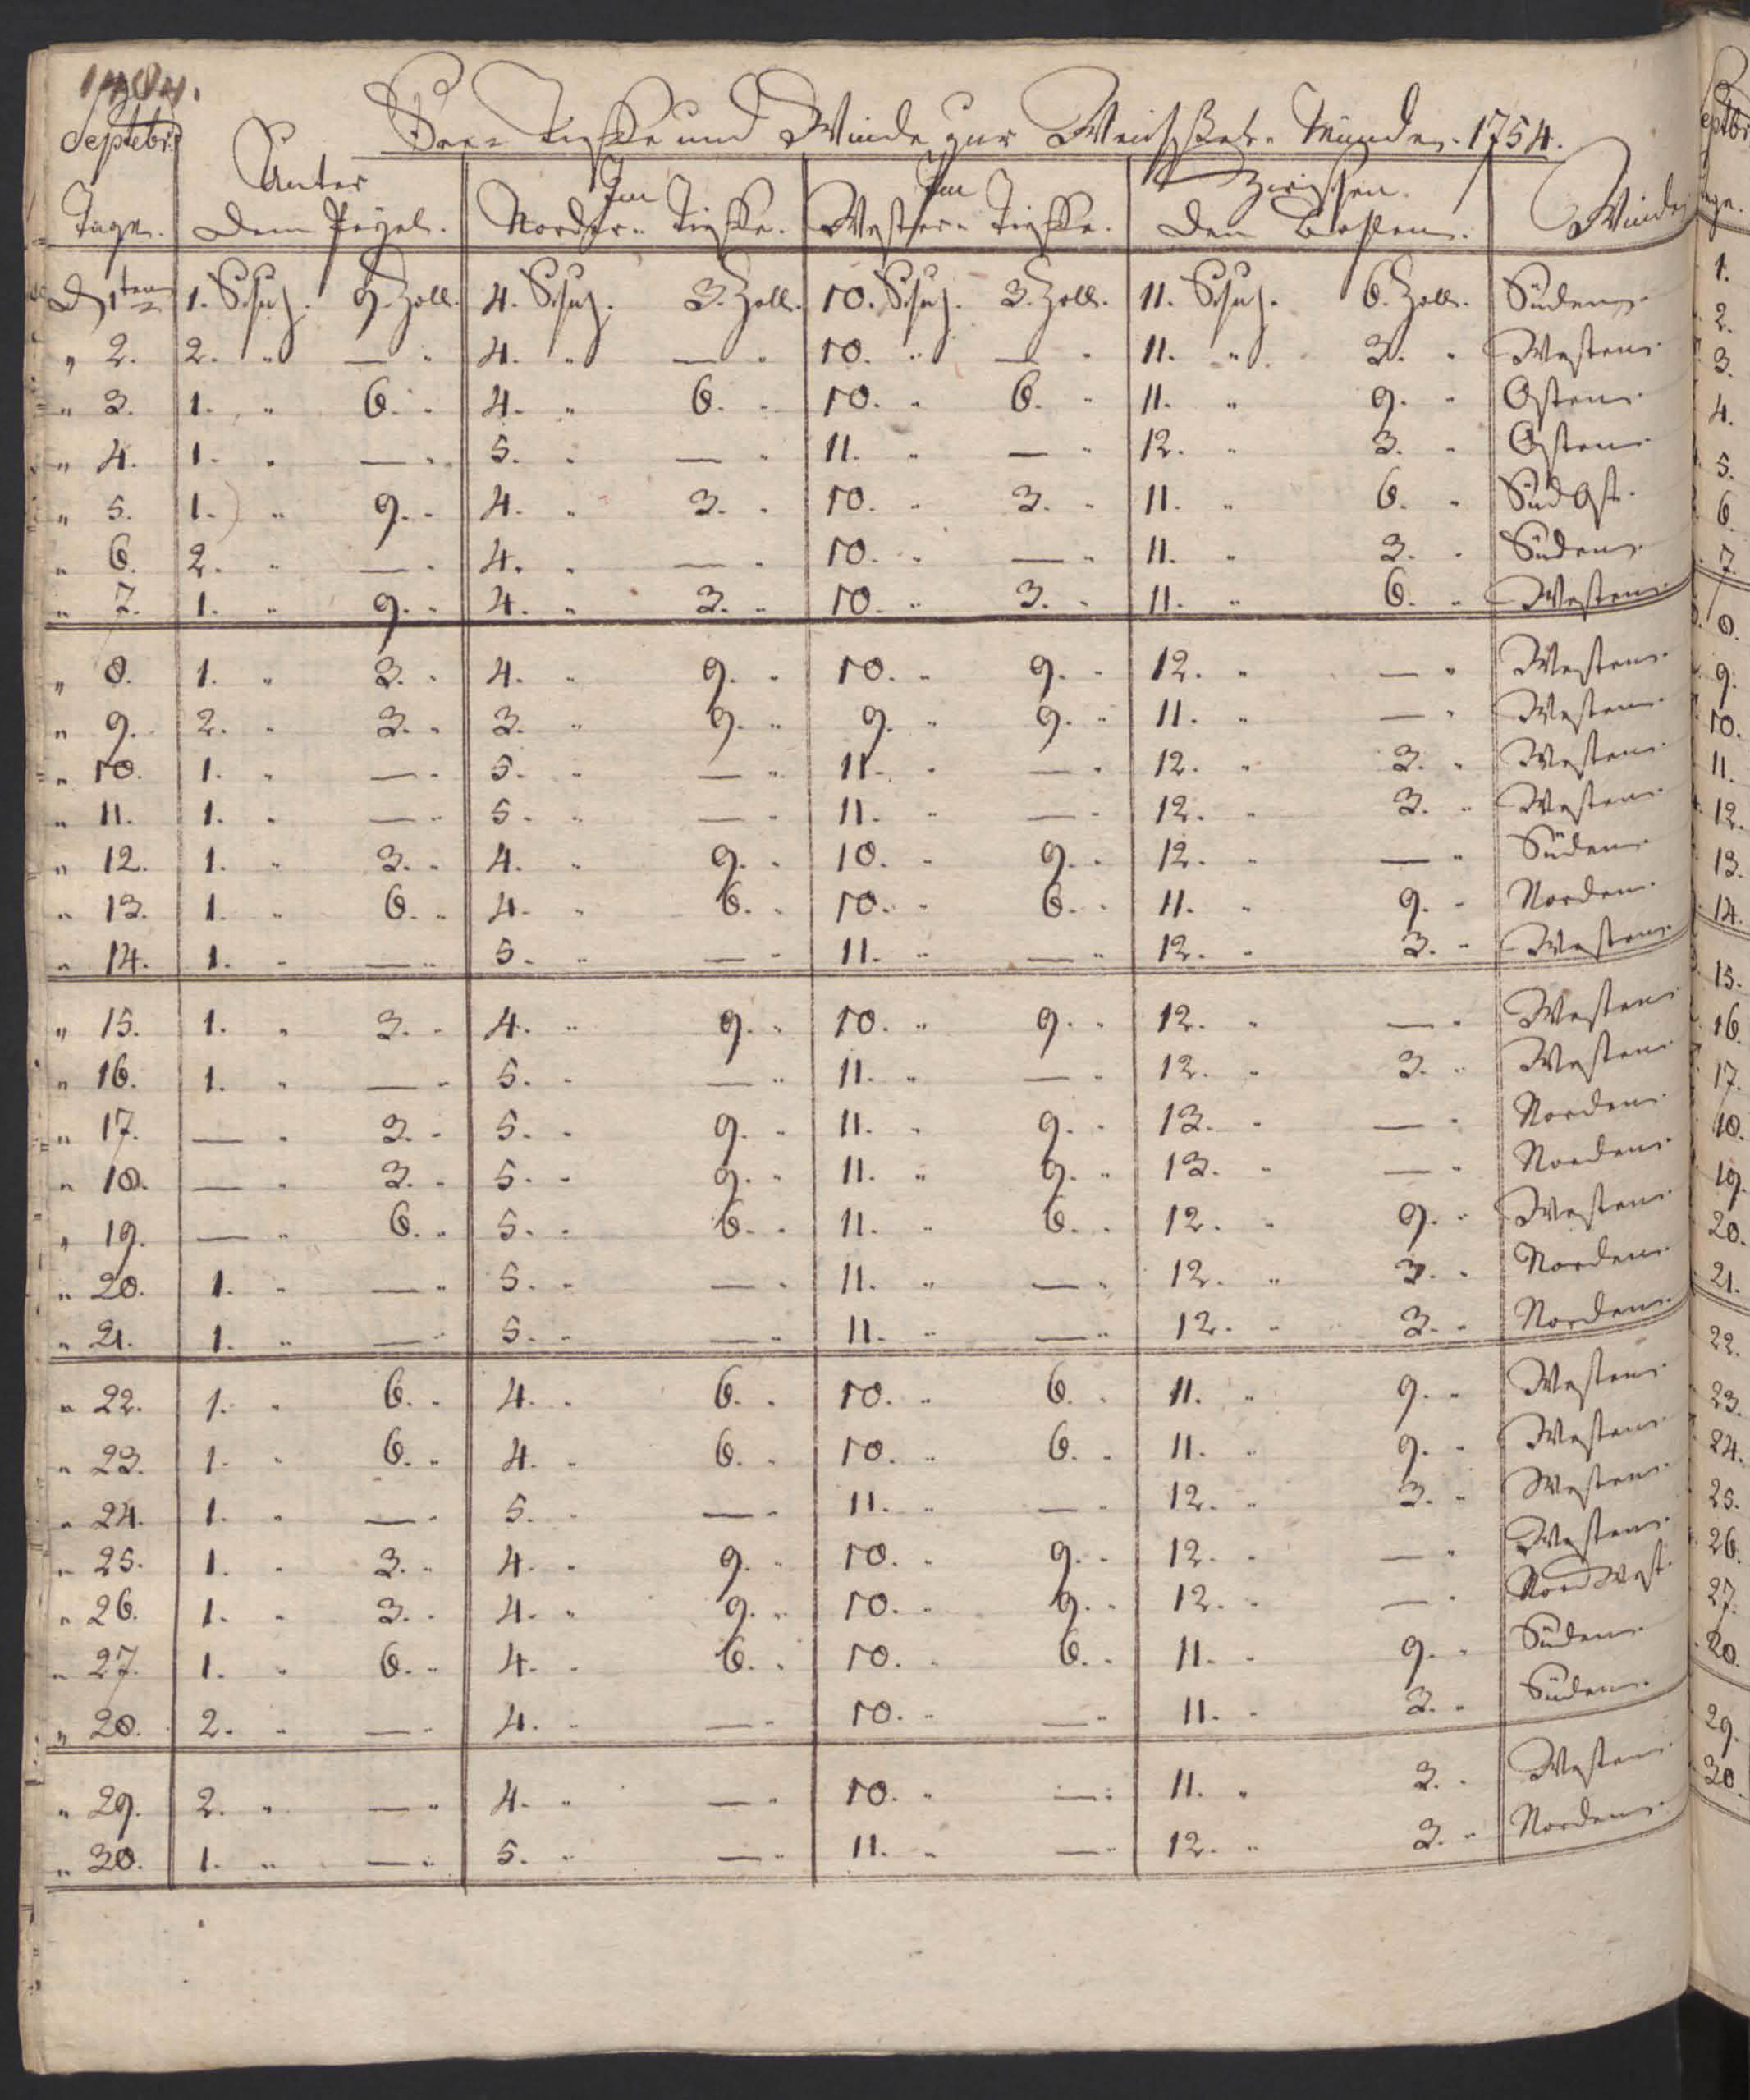 Septebr:
See-Tieffe und Winde zur Weichssel-Münde. 1754.
Tage. Unter dem Pegel. Im Norder-Tieffe. Im Wester-Tieffe. Zwischen den Winde
d 1ten 1. Schuh. 9. Zoll. 4. Schuh. 3. Zoll. 10. Schuh. 3. Zoll. 11. Schuh. 6. Zoll. Süden.
" 2. 2. " — " 4. " — " 10. " — " 11. " 3. " Westen.
" 3. 1. " 6. " 4. " 6. " 10. " 6. " 11. " 9. " Osten.
" 4. 1. " — " 5. " — " 11. " — " 12. " 3. " Osten.
" 5. 1. " 9. " 4. " 3. " 10. " 3. " 11. " 6. " SüdOst.
" 6. 2. " — " 4. " — " 10. " — " 11. " 3. " Süden.
" 7. 1. " 9. " 4. " 3. " 10. " 3. " 11. " 6. " Westen.
" 8. 1. " 3. " 4. " 9. " 10. " 9. " 12. " — " Westen.
" 9. 2. " 3. " 3. " 9. " 9. " 9. " 11. " — " Westen.
" 10. 1. " — " 5. " — " 11. " — " 12. " 3. " Westen.
" 11. 1. " — " 5. " — " 11. " — " 12. " 3. " Westen.
" 12. 1. " 3. " 4. " 9. " 10. " 9. " 12. " — " Süden.
" 13. 1. " 6. " 4. " 6. " 10. " 6. " 11. " 9. " Norden.
" 14. 1. " — " 5. " — " 11. " — " 12. " 3. " Westen.
" 15. 1. " 3. " 4. " 9. " 10. " 9. " 12. " — " Westen.
" 16. 1. " — " 5. " — " 11. " — " 12. " 3. " Westen.
" 17. — " 3. " 5. " 9. " 11. " 9. " 13. " — " Norden.
" 18. — " 3. " 5. " 9. " 11. " 9. " 13. " — " Norden.
" 19. — " 6. " 5. " 6. " 11. " 6. " 12. " 9. " Westen.
" 20. 1. " — " 5. " — " 11. " — " 12. " 3. " Norden.
" 21. 1. " — " 5. " — " 11. " — " 12. " 3. " Norden.
" 22. 1. " 6. " 4. " 6. " 10. " 6. " 11. " 9. " Westen.
" 23. 1. " 6. " 4. " 6. " 10. " 6. " 11. " 9. " Westen.
" 24. 1. " — " 5. " — " 11. " — " 12. " 3. " Westen.
" 25. 1. " 3. " 4. " 9. " 10. " 9. " 12. " — " Westen.
" 26. 1. " 3. " 4. " 9. " 10. " 9. " 12. " — " NordWest.
" 27. 1. " 6. " 4. " 6. " 10. " 6. " 11. " 9. " Süden.
" 28. 2. " — " 4. " — " 10. " — " 11. " 3. " Süden.
" 29. 2. " — " 4. " — " 10. " — " 11. " 3. " Westen.
" 30. 1. " — " 5. " — " 11. " — " 12. " 3. " Norden.
1.
2.
3.
4.
5.
6.
7.
8.
9.
10.
11.
12.
13.
14.
15.
16.
17.
18.
19.
20.
21.
22.
23.
24.
25.
26.
27.
28.
29.
30.